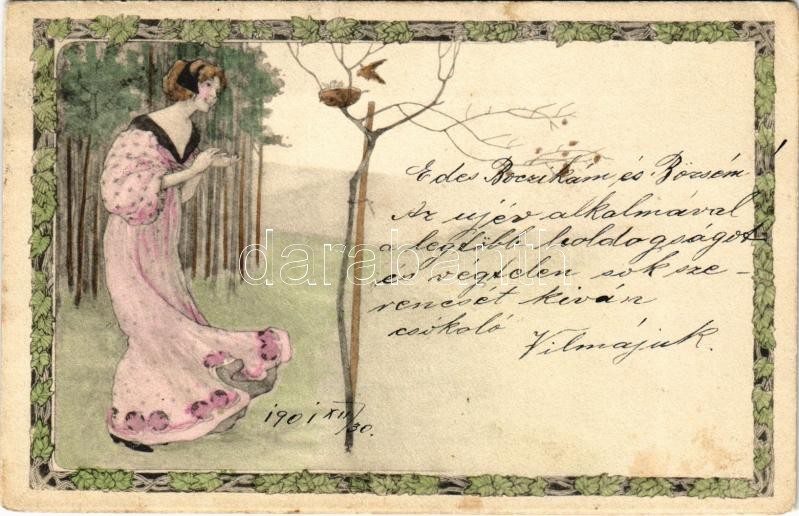 Edes Boczikám és Börsém!
Az ujév alkalmával
a legtöbb boldogságot
es vegtelen sok sze-
rencsét kiván
csókoló
Vilmájuk.
1901 XII/30.
darabanth